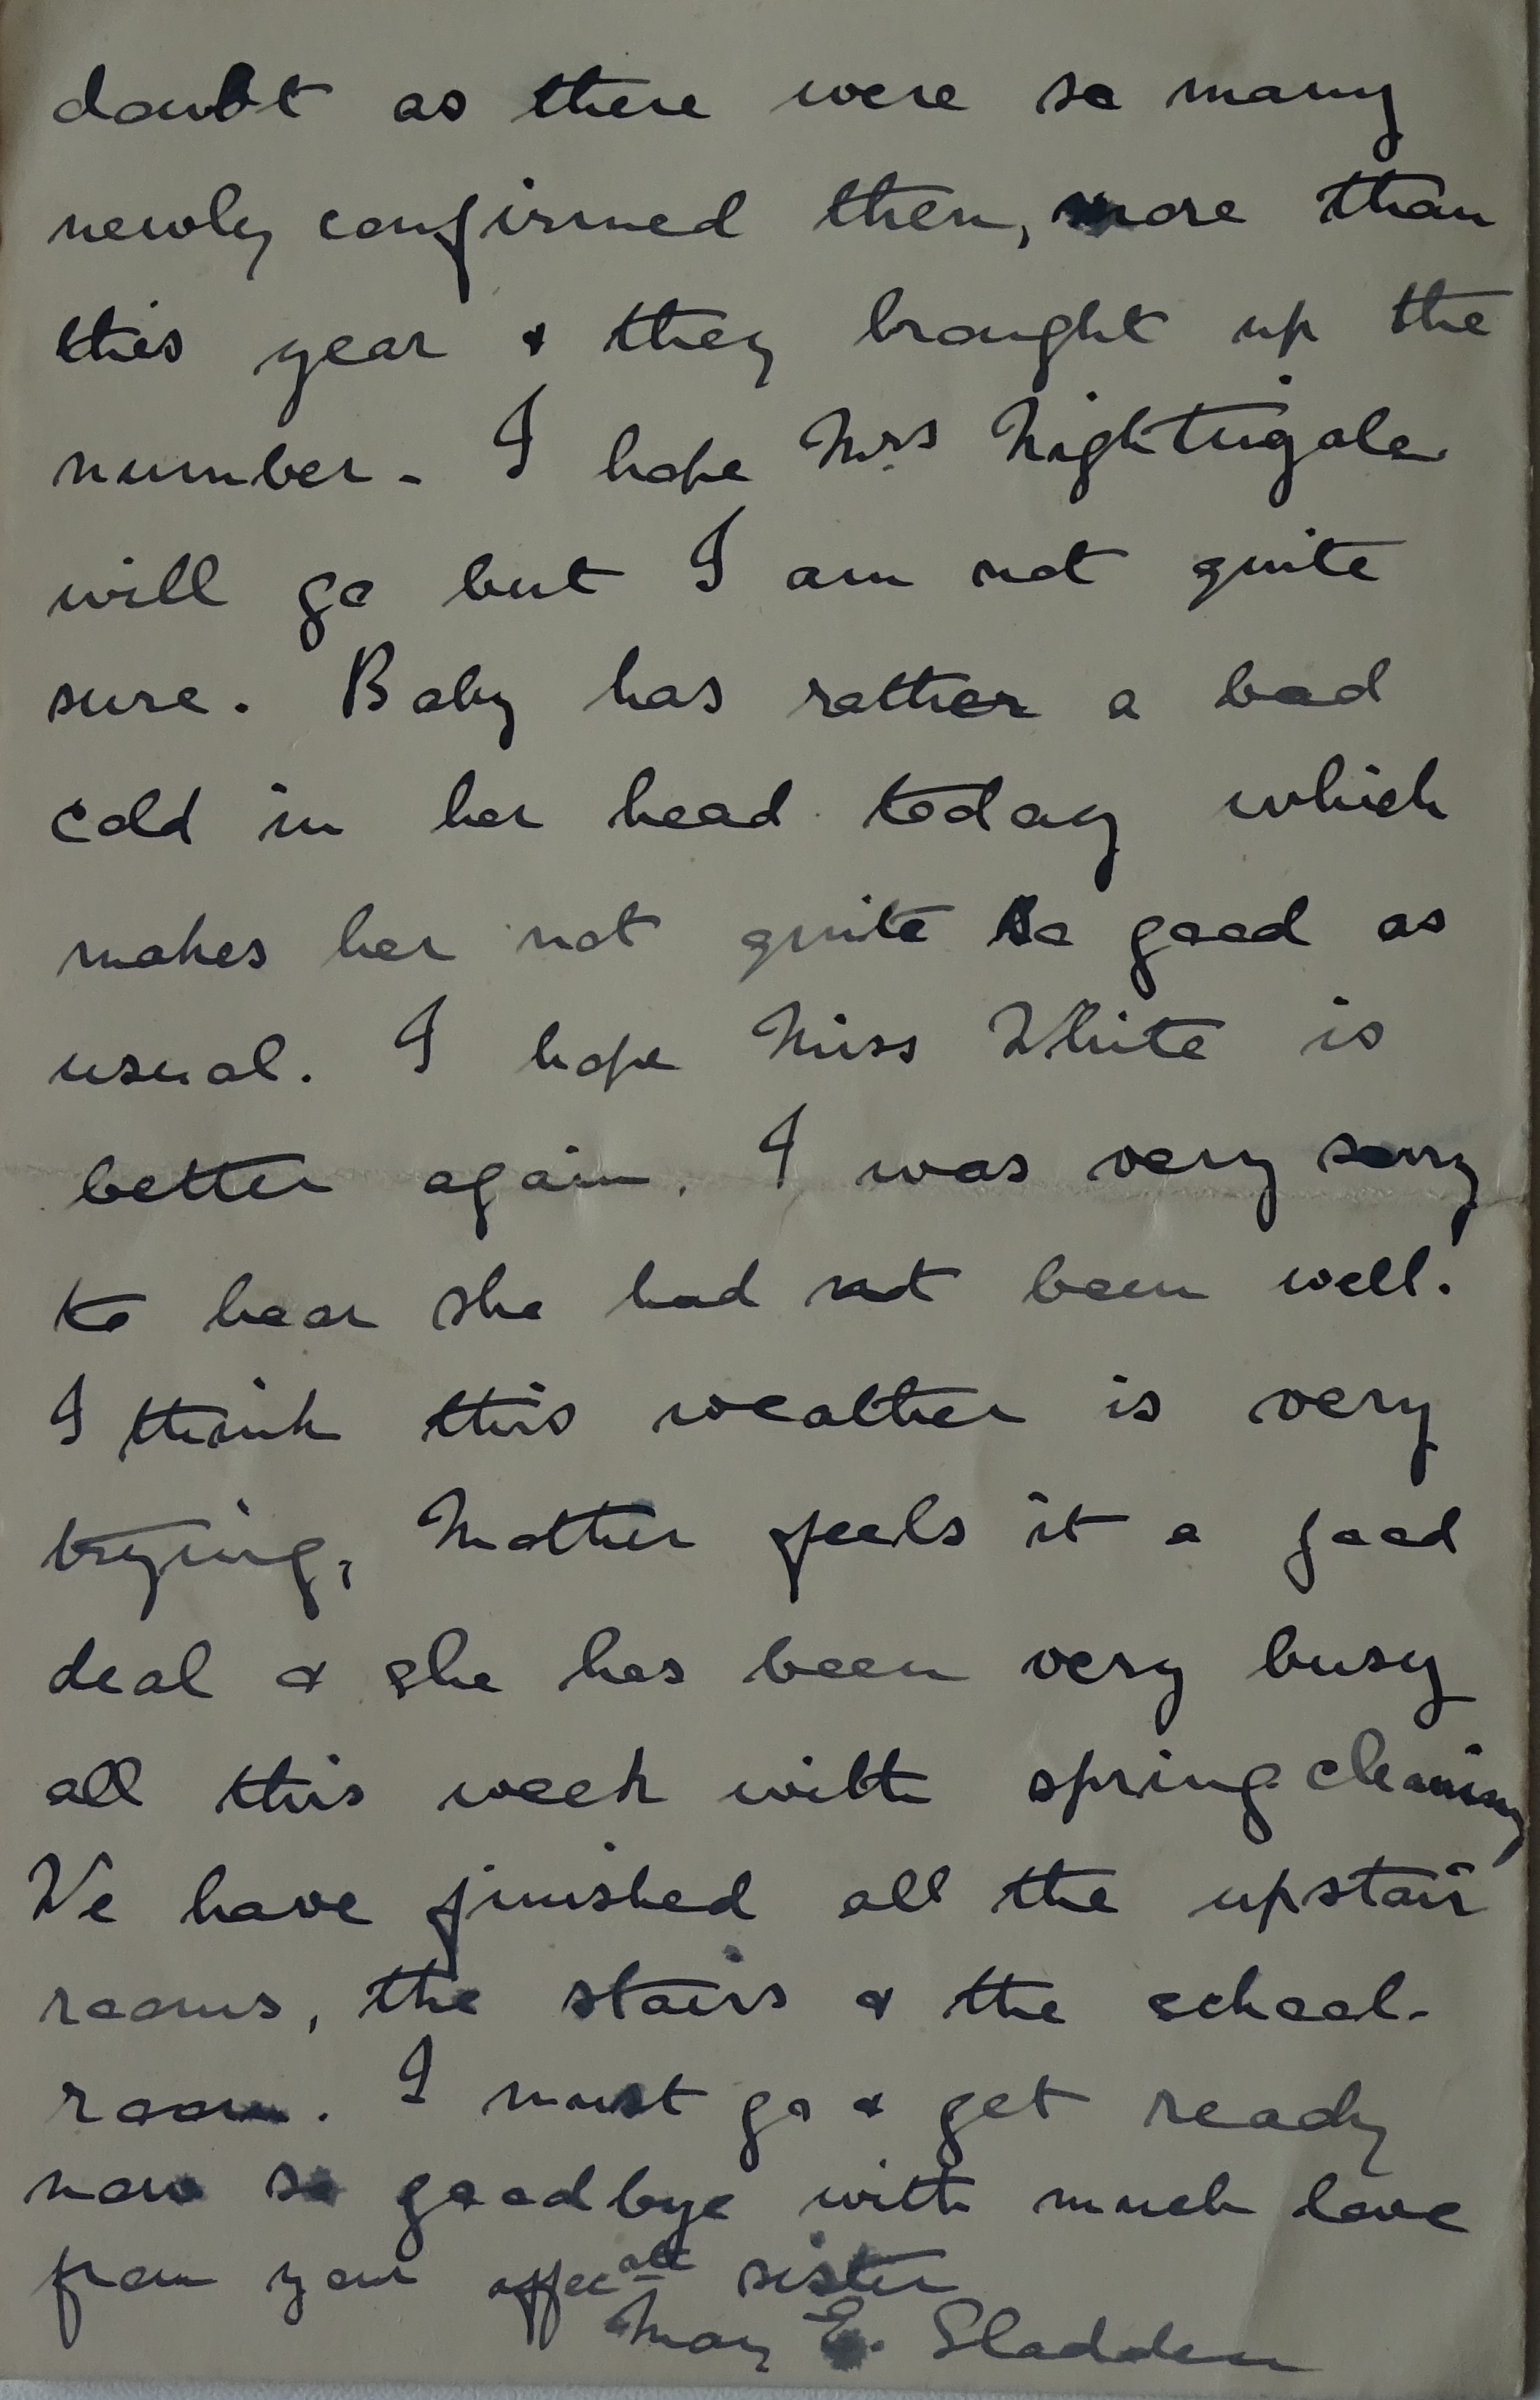 doubt as there were so many
newly confirmed then, more than
this year & they brought up the
number - I hope Mrs Nightingale
will go but I am not quite
sure. Baby has rather a bad
cold in her head today which
makes her not quite so good as
usual. I hope Miss White is
better again. I was very sorry
to hear she had not been well.
I think this weather is very
trying, Mother feels it a good
deal & she has been very busy
all this week with spring cleaning
We have finished all the upstair
rooms, the stairs & the school-
room. I must go & get ready
now so goodbye with much love
from your affecate sister
May E. Sladden